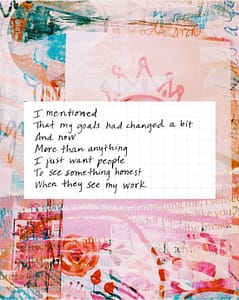 I mentioned
That my goals had changed a bit
And now
More than anything
I just want people
To see something honest
When they see my work